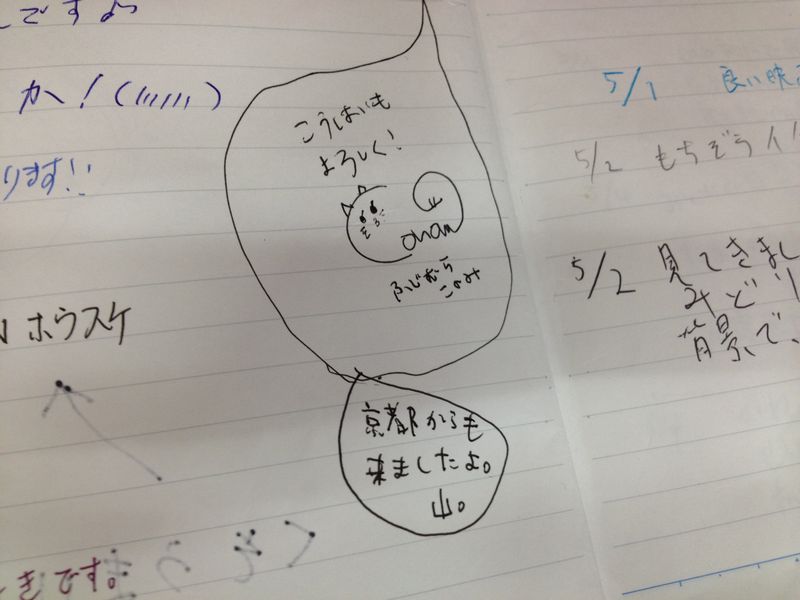 んですよ
か！(//////)
ります!!
ホウスケ
きです。
こうはいも
よろしく！
chan
ふじむら
このみ
京都からも
来ましたよ。
山。
5/1 良い映
5/2 もちぞう人!
5/2 見てきまし
みどり
背景で、